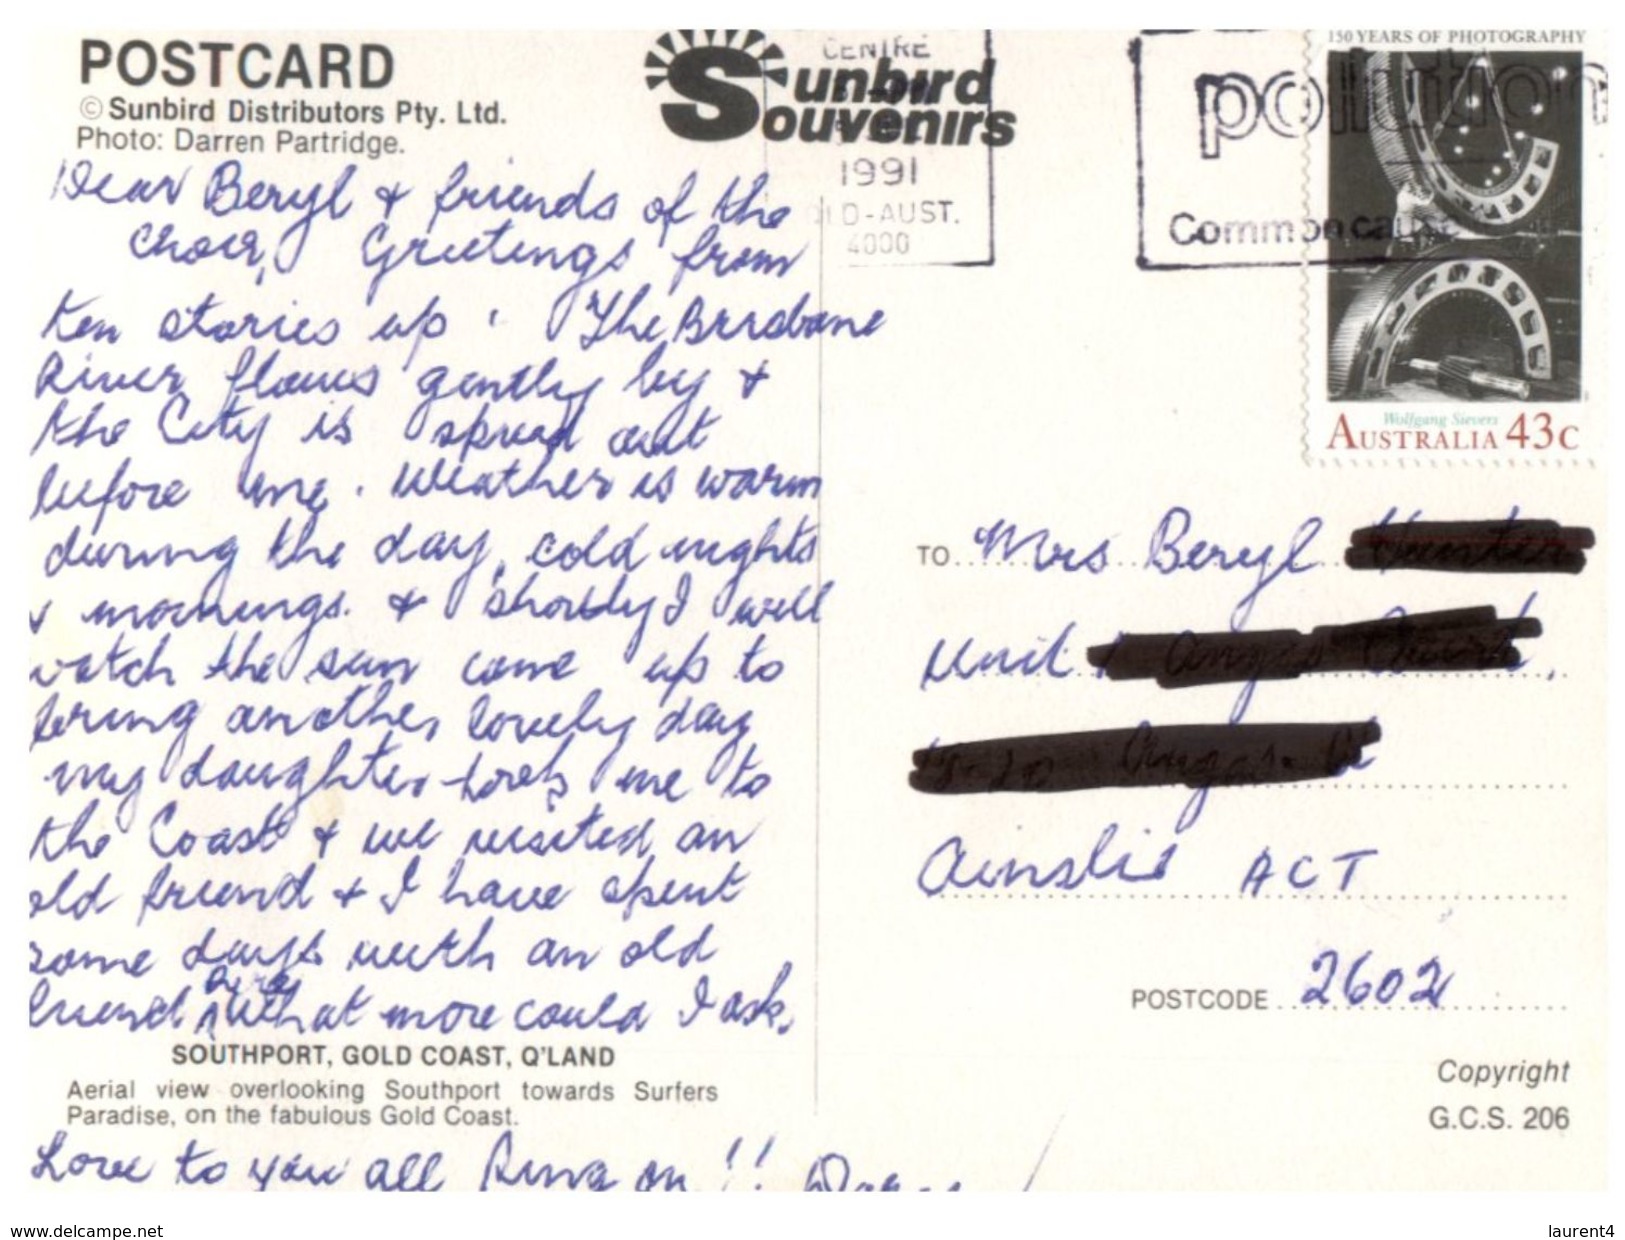 POSTCARD
© Sunbird Distributors Pty. Ltd.
Photo: Darren Partridge.
Sunbird
Souvenirs
CENTRE
1991
LD-AUST.
4000
pollution
Common cause
150 YEARS OF PHOTOGRAPHY
Wolfgang Sievers
AUSTRALIA 43c
Dear Beryl & friends of the
Choir, Greetings from
ten stories up. The Brisbane
River flows gently by &
the City is spread out
before me. Weather is warm
during the day, cold nights
& mornings. & shortly I will
watch the sun come up to
bring another lovely day
my daughter took me to
the Coast & we visited an
old friend & I have spent
some days with an old
friend here What more could I ask.
SOUTHPORT, GOLD COAST, Q'LAND
Aerial view overlooking Southport towards Surfers
Paradise, on the fabulous Gold Coast.
Love to you all Ring on!!
TO Mrs Beryl
Unit
Ainslie ACT
POSTCODE 2602
Copyright
G.C.S. 206
www.delcampe.net
laurent4